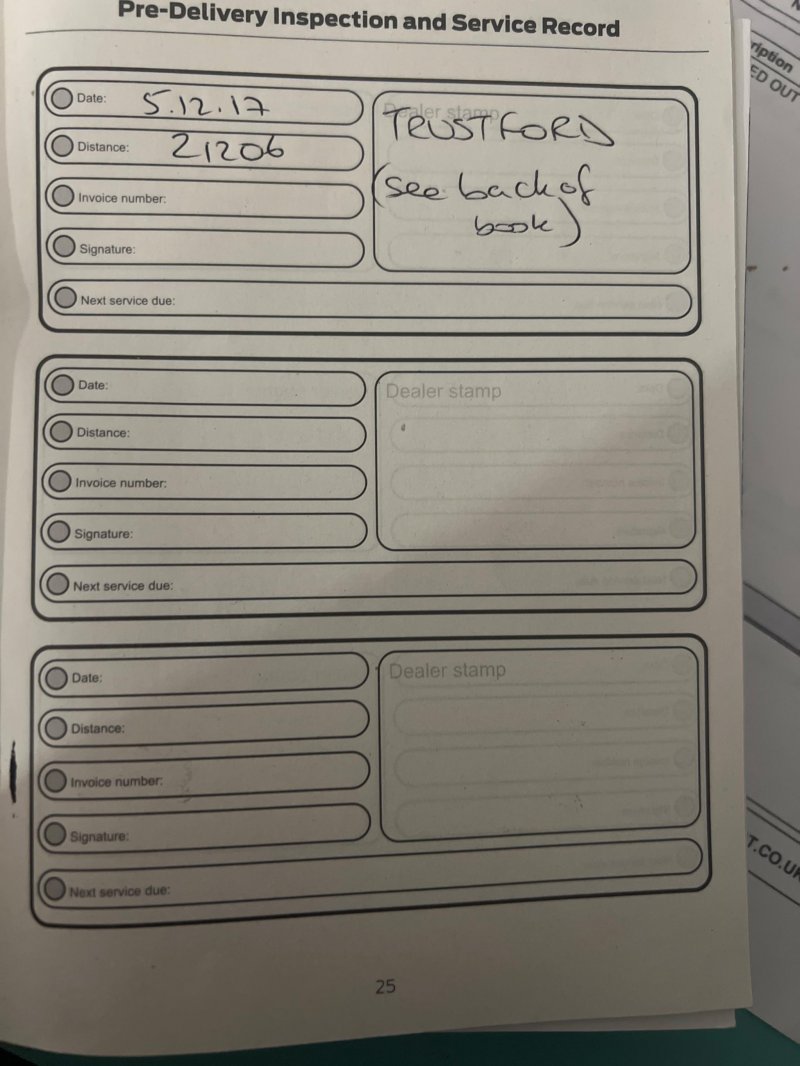 Pre-Delivery Inspection and Service Record
Date: 5.12.17
Dealer stamp
Distance: 21206
TRUSTFORD
Invoice number:
(see back of
book)
Signature:
Next service due:
Date:
Dealer stamp
Distance:
Invoice number:
Signature:
Next service due:
Date:
Dealer stamp
Distance:
Invoice number:
Signature:
Next service due:
25
ED OUT
T.CO.UK